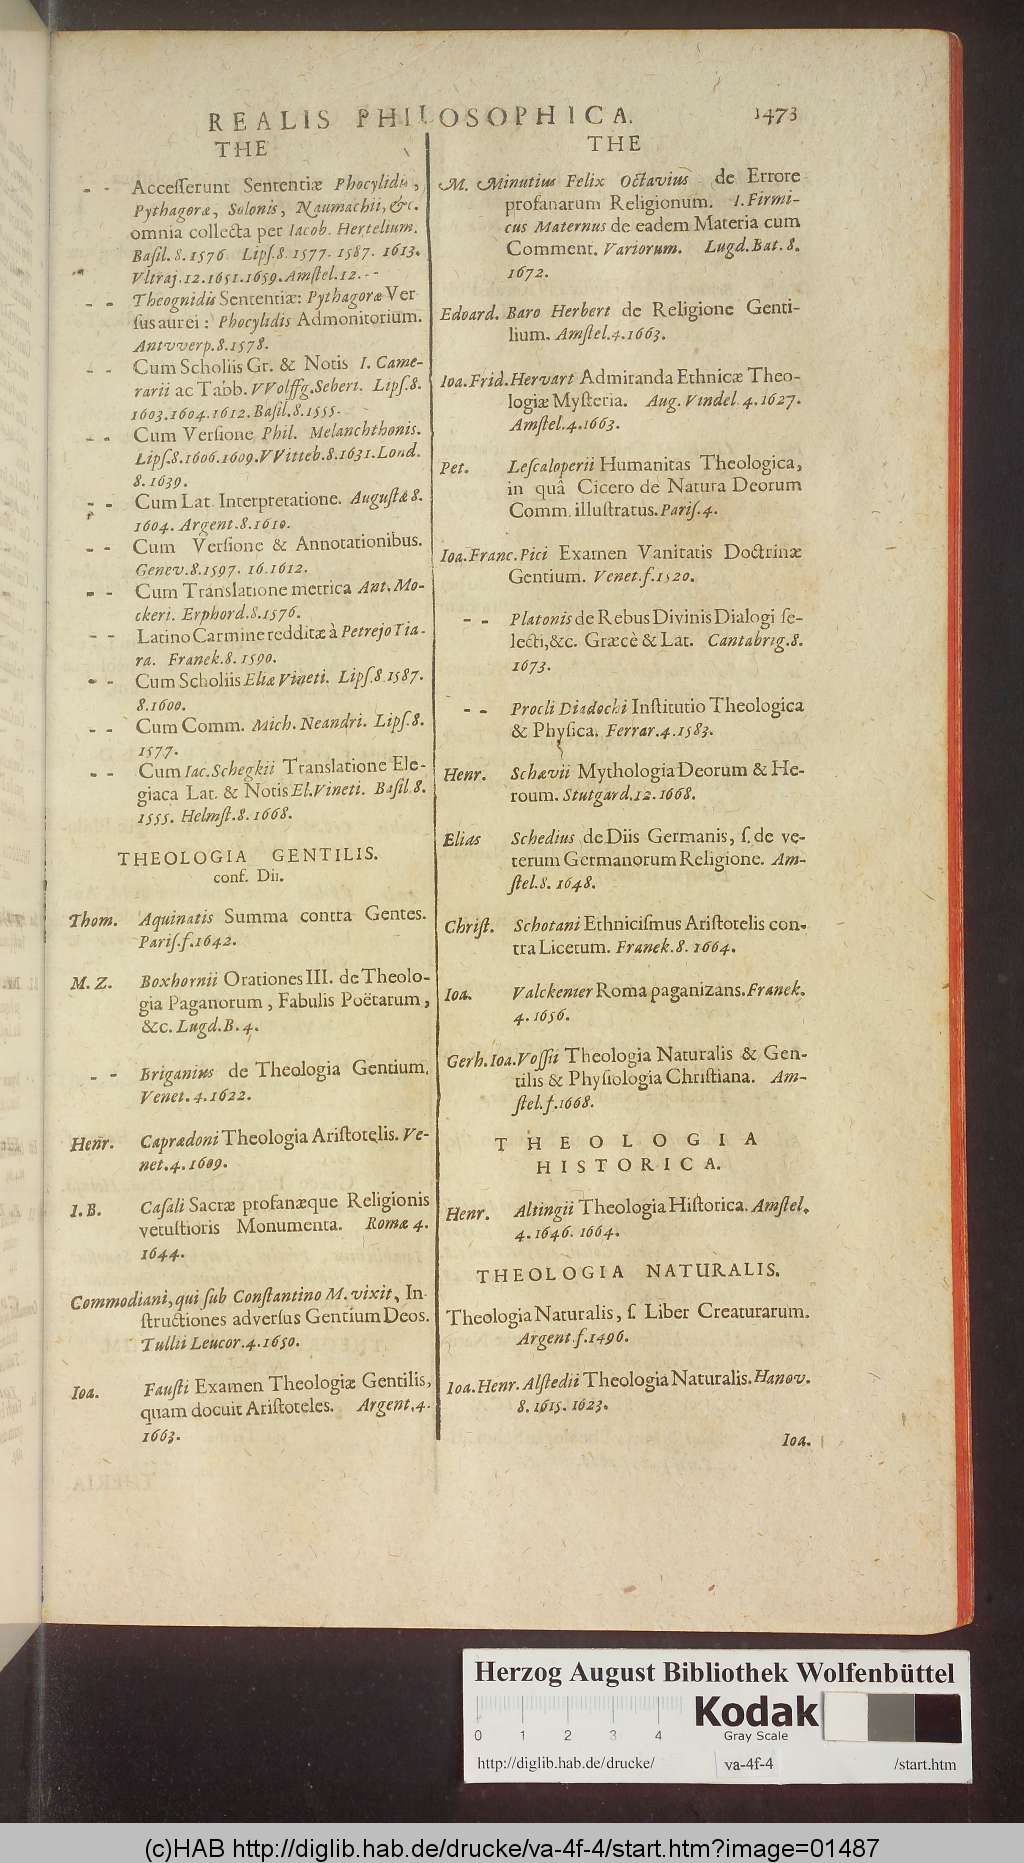 REALIS PHILOSOPHICA. 1473
THE
- - Accesserunt Sententiæ Phocylidis,
Pythagoræ, Solonis, Naumachii, &c.
omnia collecta per Iacob. Hertelium.
Basil. 8. 1576. Lipſ. 8. 1577. 1587. 1613.
Vltraj. 12. 1651. 1659. Amſtel. 12. - -
- - Theognidis Sententiæ: Pythagoræ Ver
ſus aurei: Phocylidis Admonitorium.
Antvverp. 8. 1578.
- - Cum Scholiis Gr. & Notis I. Came-
rarii ac Tabb. VVolffg. Seberi. Lipſ. 8.
1603. 1604. 1612. Baſil. 8. 1555.
- - Cum Verſione Phil. Melanchthonis.
Lipſ. 8. 1606. 1609. VVitteb. 8. 1631. Lond.
8. 1639.
- - Cum Lat. Interpretatione. Auguſtæ 8.
1604. Argent. 8. 1610.
- - Cum Verſione & Annotationibus.
Genev. 8. 1597. 16. 1612.
- - Cum Translatione metrica Ant. Mo-
ckeri. Erphord. 8. 1576.
- - Latino Carmine redditæ à Petrejo Tia-
ra. Franek. 8. 1590.
- - Cum Scholiis Eliæ Vineti. Lipſ. 8. 1587.
8. 1600.
- - Cum Comm. Mich. Neandri. Lipſ. 8.
1577.
- - Cum Iac. Schegkii Translatione Ele-
giaca Lat. & Notis El. Vineti. Baſil. 8.
1555. Helmſt. 8. 1668.
THEOLOGIA GENTILIS.
conf. Dii.
Thom. Aquinatis Summa contra Gentes.
Pariſ. f. 1642.
M. Z. Boxhornii Orationes III. de Theolo-
gia Paganorum, Fabulis Poëtarum,
&c. Lugd. B. 4.
- - Briganius de Theologia Gentium.
Venet. 4. 1622.
Henr. Capradoni Theologia Ariſtotelis. Ve-
net. 4. 1609.
I. B. Caſali Sacræ profanæque Religionis
vetuſtioris Monumenta. Romæ 4.
1644.
Commodiani, qui ſub Conſtantino M. vixit, In
ſtructiones adverſus Gentium Deos.
Tullii Leucor. 4. 1650.
Ioa. Fauſti Examen Theologiæ Gentilis,
quam docuit Ariſtoteles. Argent. 4.
1663.
THE
M. Minutius Felix Octavius de Errore
profanarum Religionum. I. Firmi-
cus Maternus de eadem Materia cum
Comment. Variorum. Lugd. Bat. 8.
1672.
Edoard. Baro Herbert de Religione Genti-
lium. Amſtel. 4. 1663.
Ioa. Frid. Hervart Admiranda Ethnicæ Theo-
logiæ Myſteria. Aug. Vindel. 4. 1627.
Amſtel. 4. 1663.
Pet. Leſcaloperii Humanitas Theologica,
in quâ Cicero de Natura Deorum
Comm. illuſtratus. Pariſ. 4.
Ioa. Franc. Pici Examen Vanitatis Doctrinæ
Gentium. Venet. f. 1520.
- - Platonis de Rebus Divinis Dialogi ſe-
lecti, &c. Græcè & Lat. Cantabrig. 8.
1673.
- - Procli Diadochi Inſtitutio Theologica
& Phyſica. Ferrar. 4. 1583.
Henr. Schævii Mythologia Deorum & He-
roum. Stutgard. 12. 1668.
Elias Schedius de Diis Germanis, ſ. de ve-
terum Germanorum Religione. Am-
ſtel. 8. 1648.
Chriſt. Schotani Ethniciſmus Ariſtotelis con-
tra Licetum. Franek. 8. 1664.
Ioa. Valckenier Roma paganizans. Franek.
4. 1656.
Gerh. Ioa. Voſſii Theologia Naturalis & Gen-
tilis & Phyſiologia Chriſtiana. Am-
ſtel. f. 1668.
THEOLOGIA
HISTORICA.
Henr. Altingii Theologia Hiſtorica. Amſtel.
4. 1646. 1664.
THEOLOGIA NATURALIS.
Theologia Naturalis, ſ. Liber Creaturarum.
Argent. f. 1496.
Ioa. Henr. Alſtedii Theologia Naturalis. Hanov.
8. 1615. 1623.
Ioa.
Herzog August Bibliothek Wolfenbüttel
0 1 2 3 4
Kodak
Gray Scale
http://diglib.hab.de/drucke/ va-4f-4 /start.htm
(c)HAB http://diglib.hab.de/drucke/va-4f-4/start.htm?image=01487